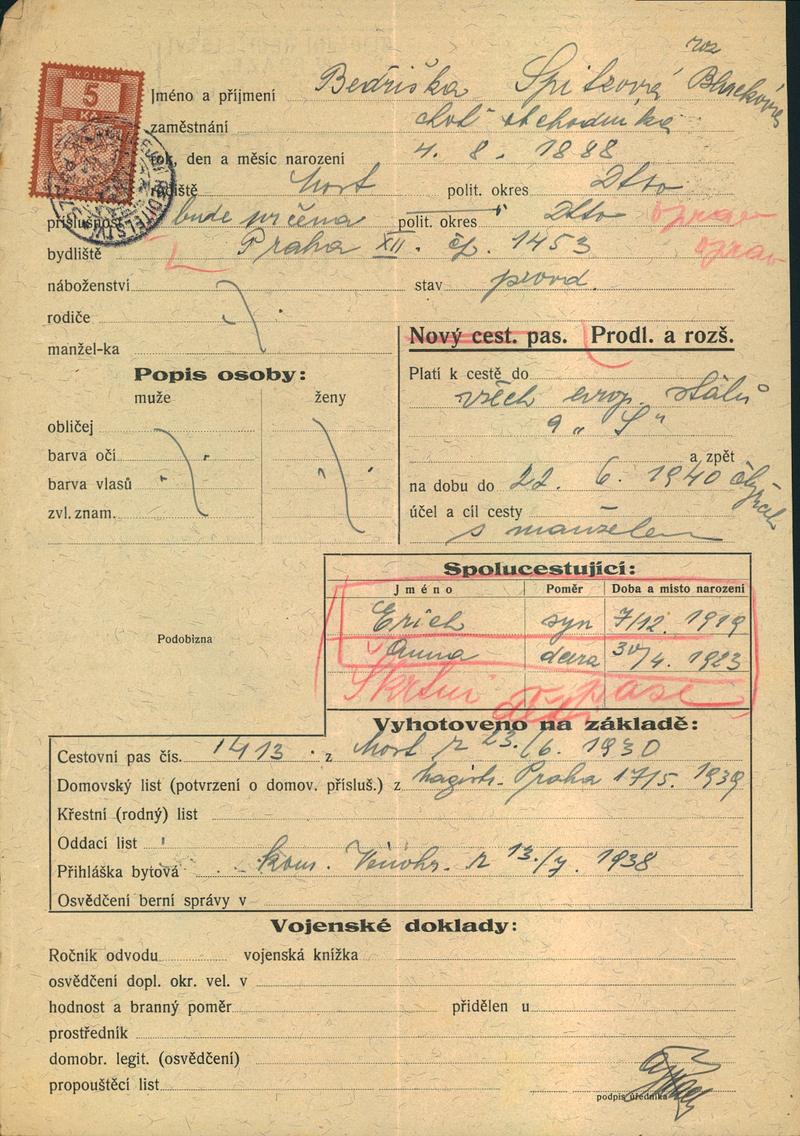 roz
Jméno a příjmení Bedřiška Spitzová
KOLEK
5
zaměstnání choť obchodníka
rok, den a měsíc narození 4. 8. 1888
rodiště Most polit. okres Dtto
příslušnost bude určena polit. okres Dtto oprav
bydliště Praha XII. čp. 1453 oprav
náboženství stav provd.
rodiče
manžel-ka
Nový cest. pas. Prodl. a rozš.
Popis osoby:
muže ženy
Platí k cestě do
všech evrop. států
a „S“
obličej
barva očí a zpět
barva vlasů na dobu do 22. 6. 1940
zvl. znam. účel a cíl cesty
s manželem
Spolucestující:
Jméno Poměr Doba a místo narození
Erich syn 7/12. 1919
Anna dcera 30/4. 1923
Podobizna
děti pase
Vyhotoveno na základě:
Cestovní pas čís. 1413 z Most z 23./6. 1930
Domovský list (potvrzení o domov. přísluš.) z magistr. Praha 17/5. 1939
Křestní (rodný) list
Oddací list
Přihláška bytová kom. Vinohr. z 13./7. 1938
Osvědčení berní správy v
Vojenské doklady:
Ročník odvodu vojenská knížka
osvědčení dopl. okr. vel. v
hodnost a branný poměr přidělen u
prostředník
domobr. legit. (osvědčení)
propouštěcí list podpis úředníka